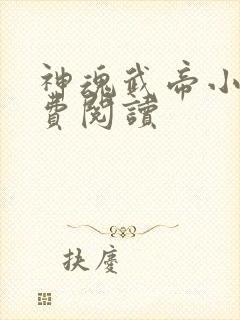 神魂武帝小
費閱讀
扶慶